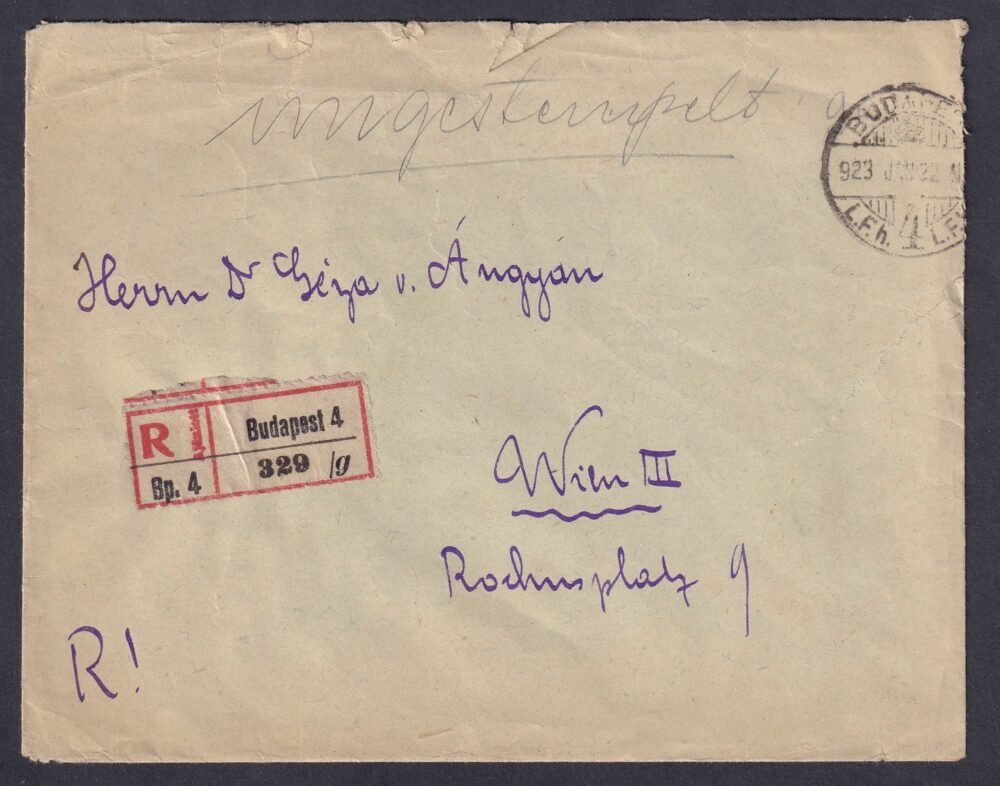 ungestempelt
BUDAPE
923 JAN 22 N
L.F.h. 4 L.F.
Herrn Dr Géza v. Ángyán
R
Budapest 4
Bp. 4
329 /g
Wien III
Rochusplatz 9
R!